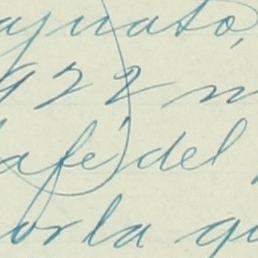 ajuato,
922 n
afé del
or la qu